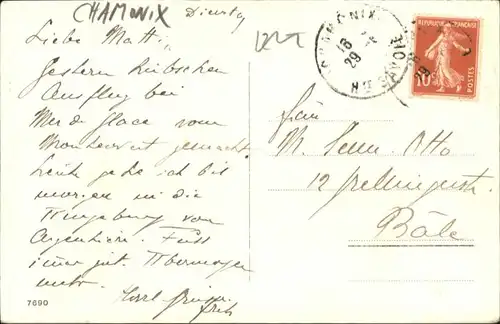 CHAMONIX
Dienstag
Liebe Matti
Gestern hübschen
Ausflug bei
Mer de glace vom
Montenvert gemacht
heute gehe ich bis
morgen in die
Umgebung von
Argentière. Fühl
immer gut. Übermorgen
mehr.
7690
CHAMONIX
SAVOIE
REPUBLIQUE FRANÇAISE
10c
POSTES
Für
M. Senn-Otto
12
Bâle